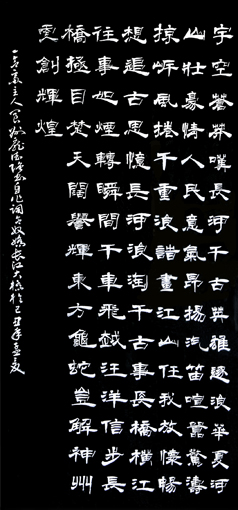 宇空蒼莽嘆長河千古英雄逐浪華夏河
山壯豪情人民意氣昂揚汽笛喧囂驚濤
掠岍風捲千重浪諧畫江山任我放懷暢
想追古思憶長河浪淘千古事長橋橫江
往事如煙轉瞬間千車飛越汪洋信步長
橋極目楚天闊譽輝東方龜蛇豈解神州
更創輝煌
主人書自作詞念奴嬌長江大橋於己丑年孟夏